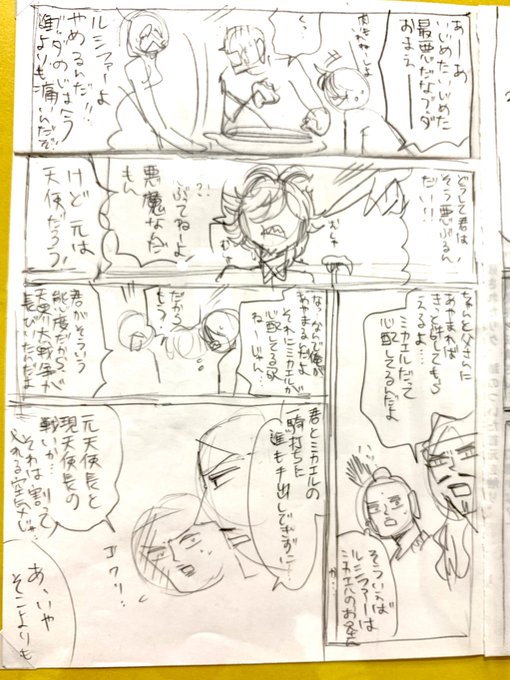 あーあ
いじめた いじめた
最悪だなブッダ
おまえー
く…
ルシファーよ
やめるんだ…!!
誰よりも痛いんだぞ
どうして君は
そう悪ぶるん
だい!!
ぶってねーよ
悪魔なんだ
もん
けど元は
天使だろう!
ちゃんと父さんに
あやまれば
きっと許してもら
えるよ…
ミカエルだって
心配してるんだよ
そういえば
ルシファーは
ミカエルのお兄
か…
な?なんで俺が
あやまるんだよ
それにミカエルが
心配してる訳
ねーじゃん…
だから
もう?
君がそういう
態度だから
天界大戦争が
長びいたんだよ
君とミカエルの
一騎打ちに
誰も手出しできずに…
ゴクリ…
元天使長と
現天使長の
戦いか…
それは割って
入れる空気じゃ…
あ、いや
そこよりも